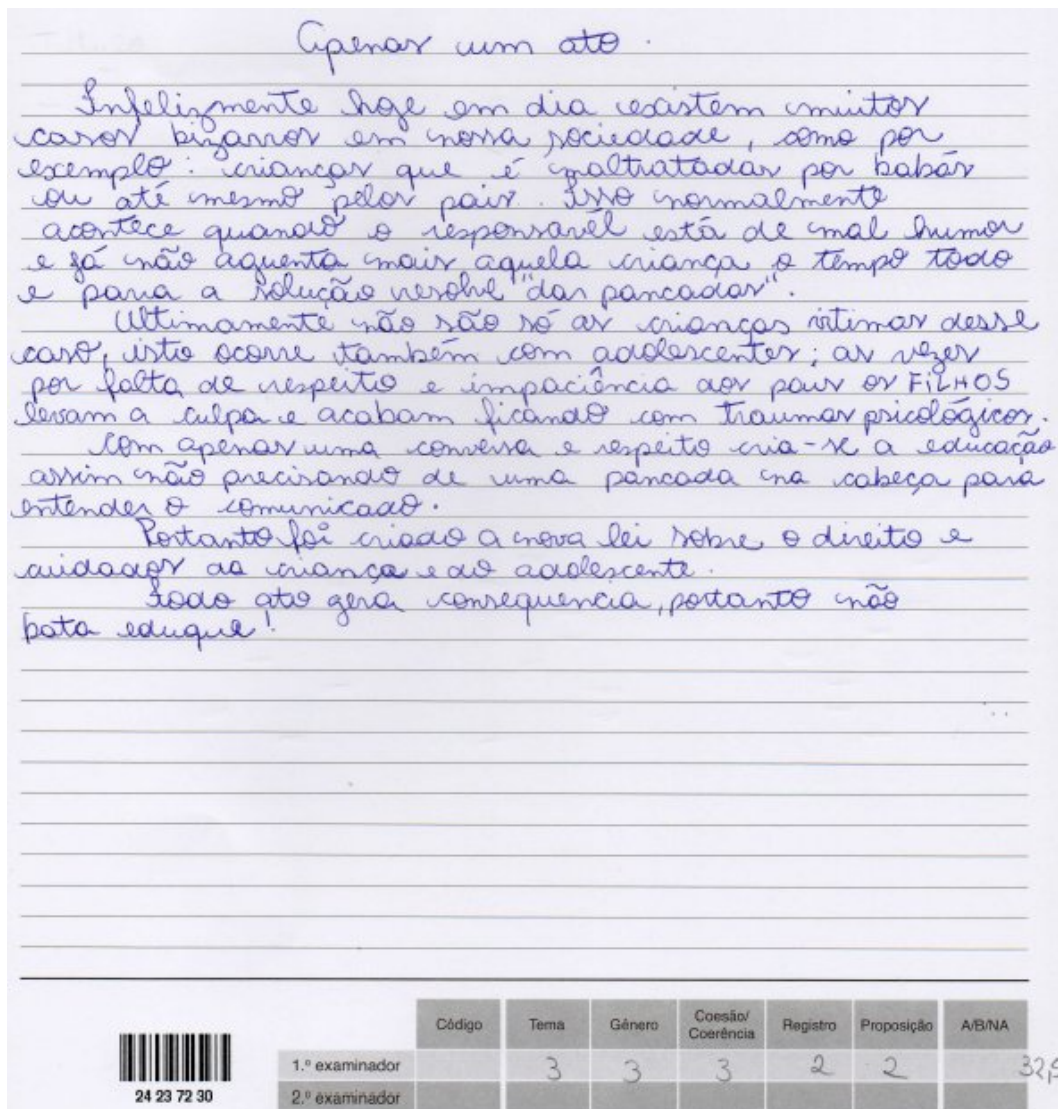 Apenas um ato.
Infelizmente hoje em dia existem muitos
casos bizarros em nossa sociedade, como por
exemplo: crianças que é maltratadas por babás
ou até mesmo pelos pais. Isso normalmente
acontece quando o responsavél está de mal humor
e já não aguenta mais aquela criança o tempo todo
e para a solução resolve "dar pancadas".
Ultimamente não são só as crianças vitimas desse
caso, isto ocorre também com adolescentes; as vezes
por falta de respeito e impaciência aos pais os FILHOS
levam a culpa e acabam ficando com traumas psicológicos.
Com apenas uma conversa e respeito cria-se a educação
assim não precisando de uma pancada na cabeça para
entender o comunicado.
Portanto foi criado a nova lei sobre o direito e
cuidados da criança e do adolescente.
Todo ato gera consequencia, portanto não
bata eduque!
Código Tema Gênero Coesão/Coerência Registro Proposição A/B/NA
1.º examinador 3 3 3 2 2 32,5
24 23 72 30 2.º examinador